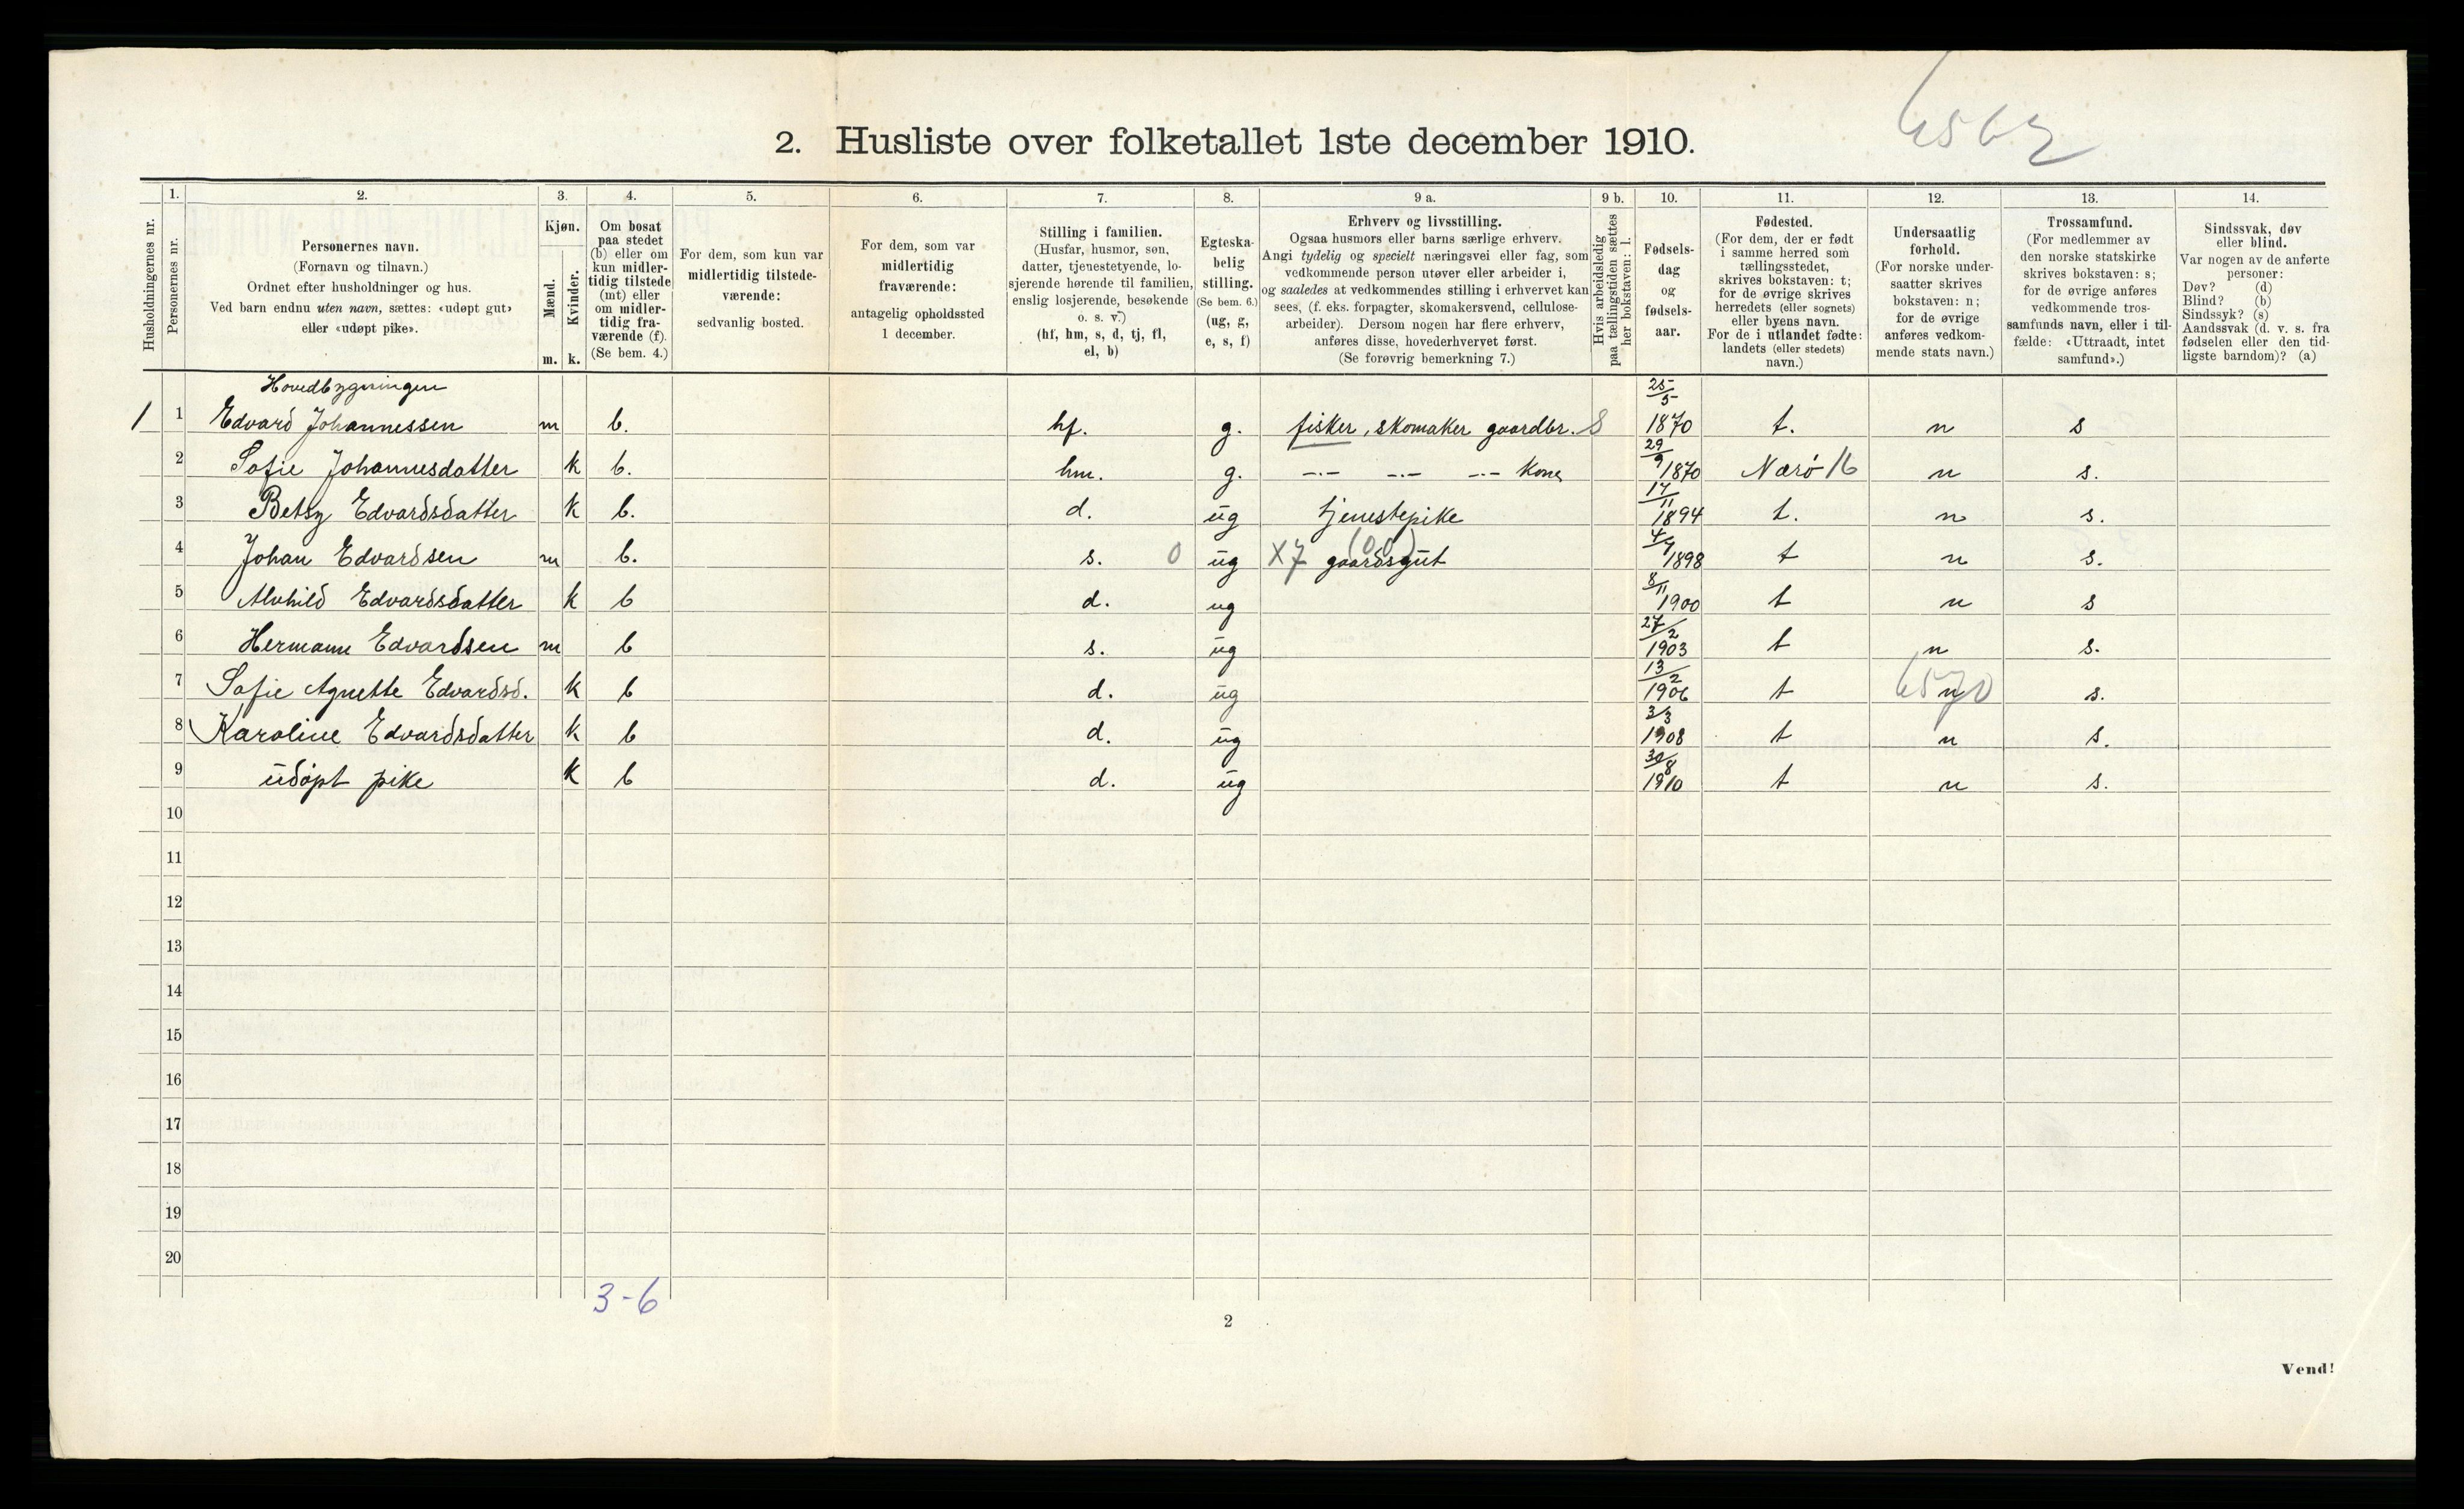 6562
2. Husliste over folketallet 1ste december 1910.
Husholdningernes nr.
1. Personernes nr.
2. Personernes navn. (Fornavn og tilnavn.) Ordnet efter husholdninger og hus. Ved barn endnu uten navn, sættes: «udøpt gut» eller «udøpt pike».
3. Kjøn. Mænd. m. Kvinder. k.
4. Om bosat paa stedet (b) eller om kun midlertidig tilstede (mt) eller om midlertidig fraværende (f). (Se bem. 4.)
5. For dem, som kun var midlertidig tilstedeværende: sedvanlig bosted.
6. For dem, som var midlertidig fraværende: antagelig opholdssted 1 december.
7. Stilling i familien. (Husfar, husmor, søn, datter, tjenestetyende, losjerende hørende til familien, enslig losjerende, besøkende o. s. v.) (hf, hm, s, d, tj, fl, el, b)
8. Egteskabelig stilling. (Se bem. 6.) (ug, g, e, s, f)
9 a. Erhverv og livsstilling. Ogsaa husmors eller barns særlige erhverv. Angi tydelig og specielt næringsvei eller fag, som vedkommende person utøver eller arbeider i, og saaledes at vedkommendes stilling i erhvervet kan sees, (f. eks. forpagter, skomakersvend, cellulosearbeider). Dersom nogen har flere erhverv, anføres disse, hovederhvervet først. (Se forøvrig bemerkning 7.)
9 b. Hvis arbeidsledig paa tællingstiden sættes her bokstaven: l.
10. Fødselsdag og fødselsaar.
11. Fødested. (For dem, der er født i samme herred som tællingsstedet, skrives bokstaven: t; for de øvrige skrives herredets (eller sognets) eller byens navn. For de i utlandet fødte: landets (eller stedets) navn.)
12. Undersaatlig forhold. (For norske undersaatter skrives bokstaven: n; for de øvrige anføres vedkommende stats navn.)
13. Trossamfund. (For medlemmer av den norske statskirke skrives bokstaven: s; for de øvrige anføres vedkommende trossamfunds navn, eller i tilfælde: «Uttraadt, intet samfund».)
14. Sindssvak, døv eller blind. Var nogen av de anførte personer: Døv? (d) Blind? (b) Sindssyk? (s) Aandssvak (d. v. s. fra fødselen eller den tidligste barndom)? (a)
Hovedbygningen
1 1 Edvard Johannessen m b. hf. g. fisker, skomaker gaardbr. S 25/5 1870 t. n s
2 Sofie Johannesdatter k b. hm. g. -.- -.- -.- Kone 29/9 1870 Nærø 16 n s.
3 Betsy Edvardsdatter k b. d. ug tjenestepike 17/11 1894 t. n s.
4 Johan Edvardsen m b. s. 0 ug X7 gaardsgut (00) 4/9 1898 t n s.
5 Alvhild Edvardsdatter k b d. ug 8/11 1900 t n s
6 Hermann Edvardsen m b s. ug 27/2 1903 t n s.
7 Sofie Agnette Edvardsd. k b d. ug 13/2 1906 t n 6570 s.
8 Karoline Edvardsdatter k b d. ug 3/3 1908 t n s.
9 udøpt pike k b d. ug 30/8 1910 t n s.
10
11
12
13
14
15
16
17
18
19
20
3-6
2
Vend!